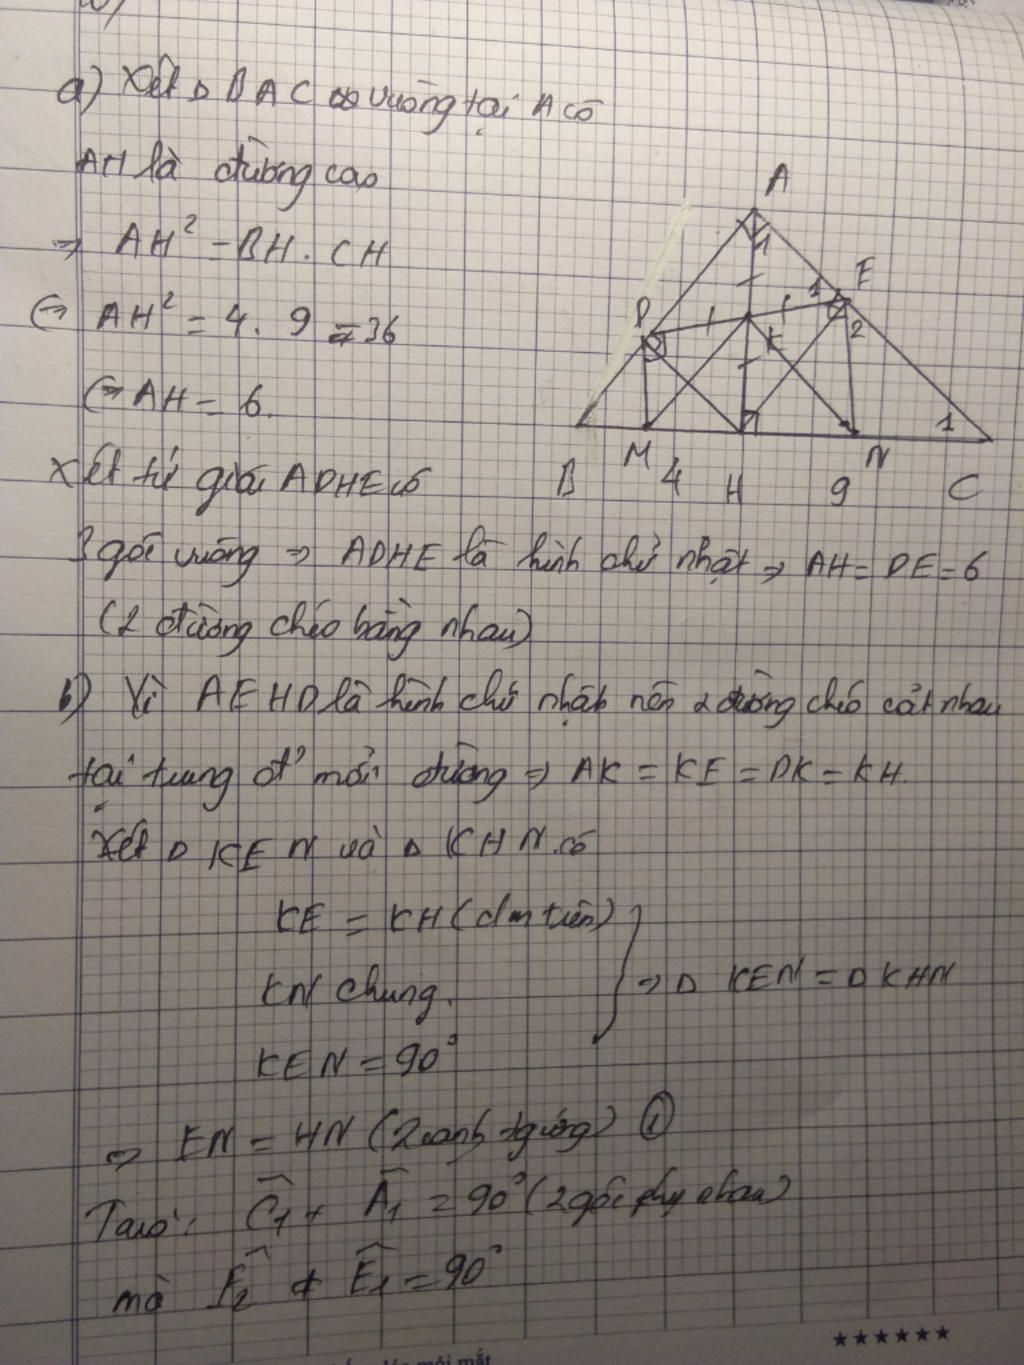 a) Xét Δ BAC vuông tại A có
AH là đường cao
⇒ AH² = BH . CH
⇔ AH² = 4 . 9 = 36
⇔ AH = 6.
Xét tứ giác ADHE có
3 góc vuông ⇒ ADHE là hình chữ nhật ⇒ AH = DE = 6
(2 đường chéo bằng nhau)
b) Vì AEHD là hình chữ nhật nên 2 đường chéo cắt nhau
tại trung đ' mỗi đường ⇒ AK = KE = DK = KH.
Xét Δ KEN và Δ KHN có
KE = KH (cm trên)
KN chung.
KEN = 90°
⇒ Δ KEN = Δ KHN
⇒ EN = HN (2 cạnh tg ứng) ①
Ta có: Ĉ1 + Â1 = 90° (2 góc phụ nhau)
mà Ê2 + Ê1 = 90°
A
1
E
1
2
D
K
1
B
M
4
H
9
N
C
★★★★★★
mỏi mắt